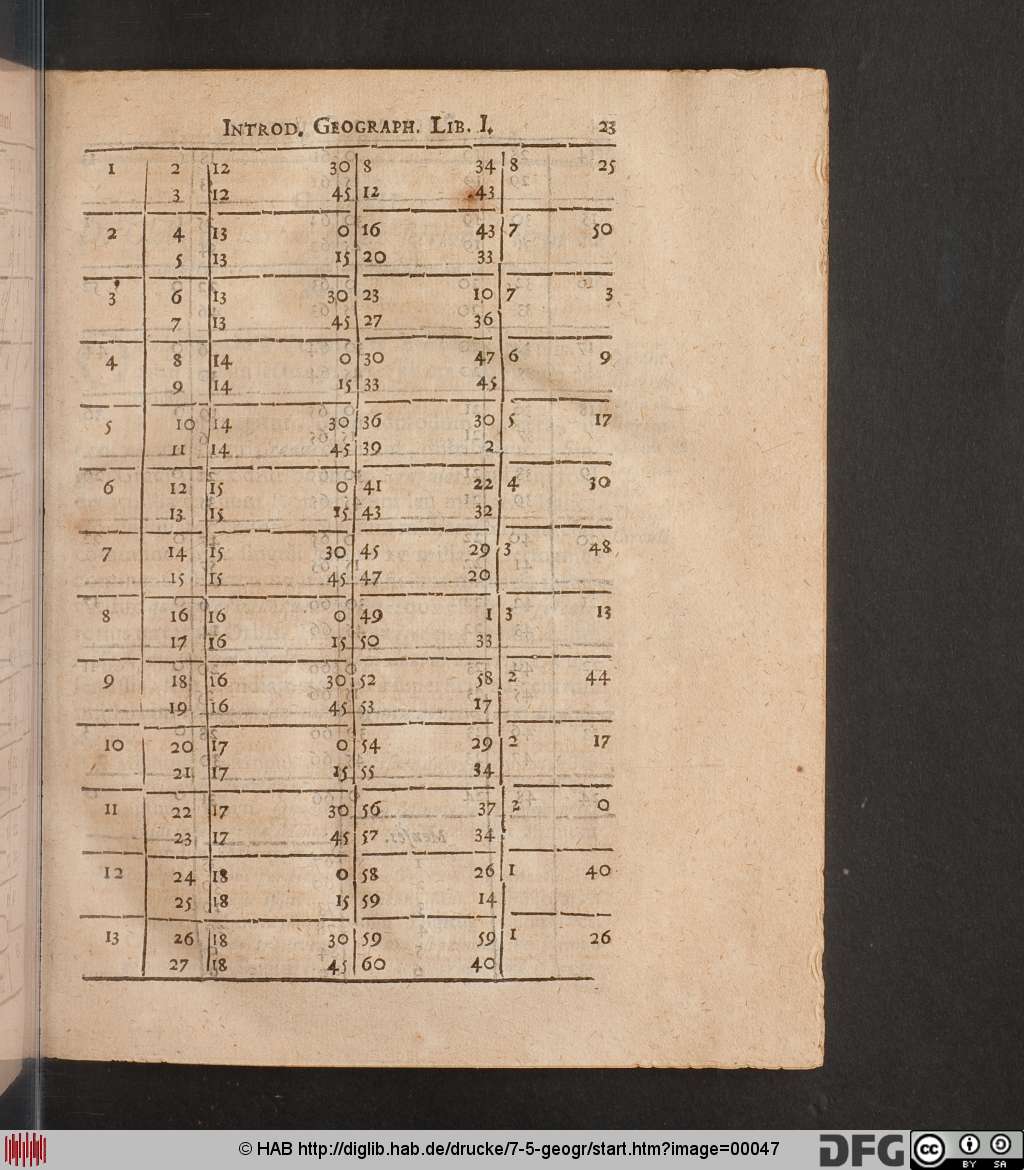 INTROD. GEOGRAPH. LIB. I. 23
1 2 12 30 8 34 8 25
3 12 45 12 43
2 4 13 0 16 43 7 50
5 13 15 20 33
3 6 13 30 23 10 7 3
7 13 45 27 36
4 8 14 0 30 47 6 9
9 14 15 33 45
5 10 14 30 36 30 5 17
11 14 45 39 2
6 12 15 0 41 22 4 30
13 15 15 43 32
7 14 15 30 45 29 3 48
15 15 45 47 20
8 16 16 0 49 1 3 13
17 16 15 50 33
9 18 16 30 52 58 2 44
19 16 45 53 17
10 20 17 0 54 29 2 17
21 17 15 55 34
11 22 17 30 56 37 2 0
23 17 45 57 34
12 24 18 0 58 26 1 40
25 18 15 59 14
13 26 18 30 59 59 1 26
27 18 45 60 40
© HAB http://diglib.hab.de/drucke/7-5-geogr/start.htm?image=00047
DFG
cc
BY SA